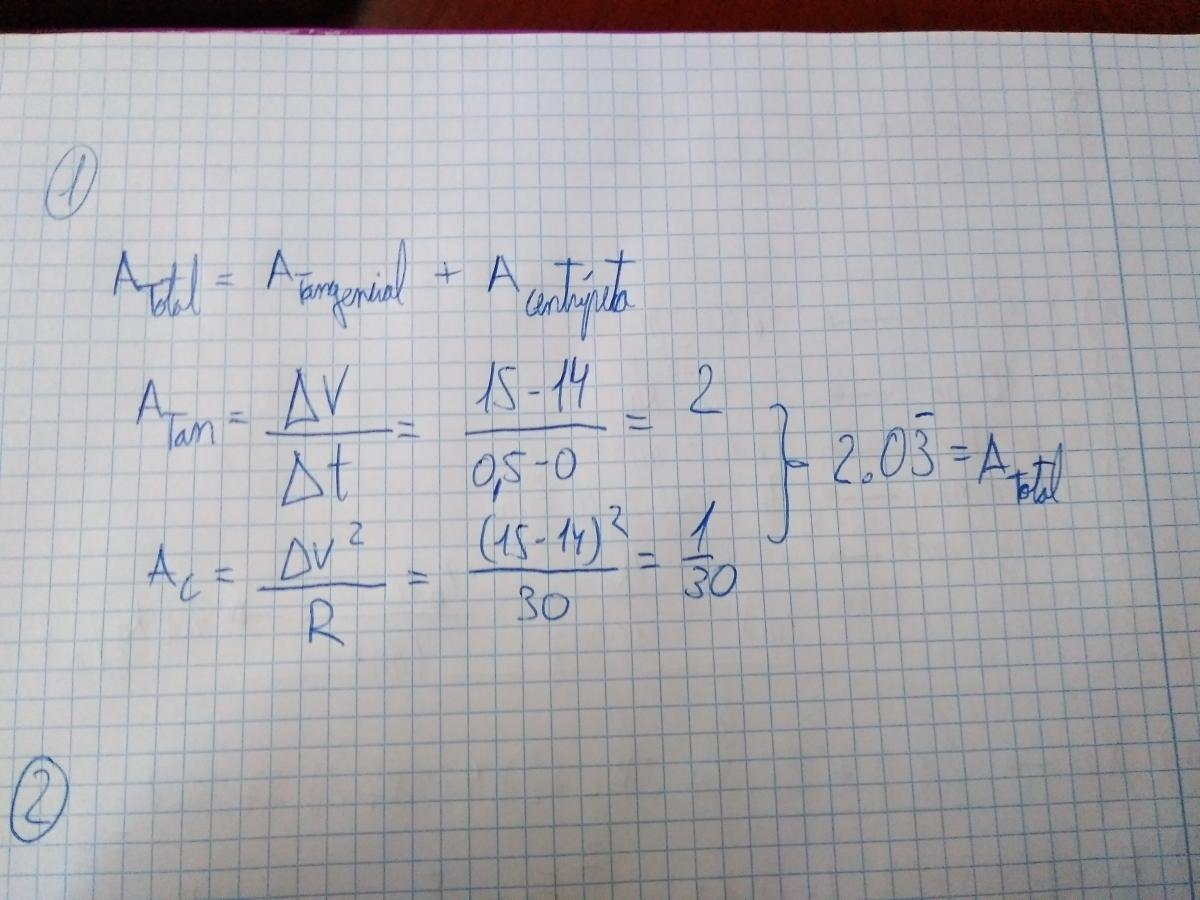 ①
A_Total = A_Tangencial + A_centrípeta
A_Tan = ΔV/Δt = (15-14)/(0,5-0) = 2
A_c = ΔV²/R = (15-14)²/30 = 1/30
} 2.03̄ = A_Total
②